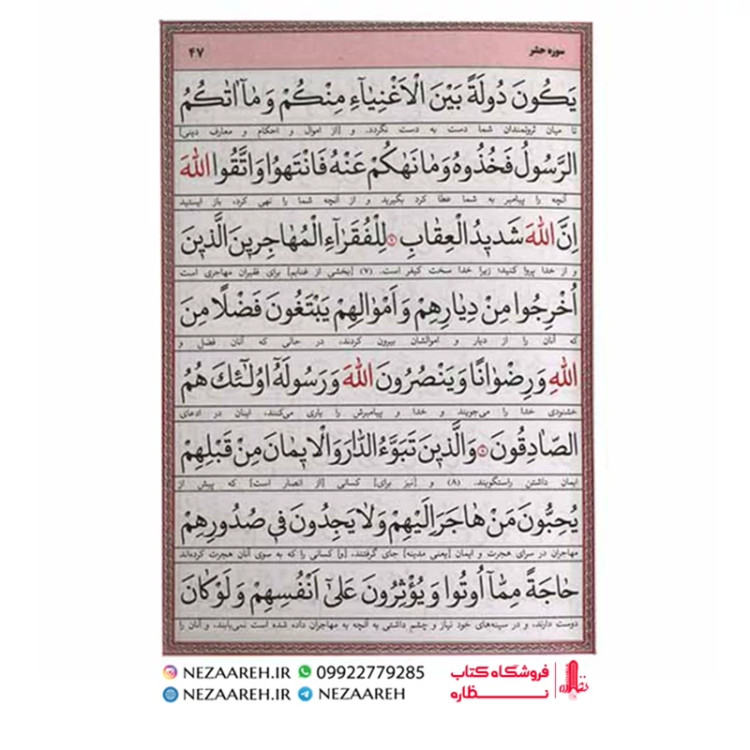 سوره حشر ۴۷
يَكُونَ دُولَةً بَيْنَ الْاَغْنِيٰٓاءِ مِنْكُمْ وَ مٰٓا اٰتٰكُمُ
تا میان ثروتمندان شما دست به دست نگردد. و [از اموال و احکام و معارف دینی]
الرَّسُولُ فَخُذُوهُ وَ مٰا نَهٰكُمْ عَنْهُ فَانْتَهُوا وَ اتَّقُوا اللّٰهَ
آنچه را پیامبر به شما عطا کرد بگیرید و از آنچه شما را نهی کرد، باز ایستید
اِنَّ اللّٰهَ شَدٖيدُ الْعِقٰابِ ۷ لِلْفُقَرٰٓاءِ الْمُهٰاجِرٖينَ الَّذٖينَ
و از خدا پروا کنید؛ زیرا خدا سخت کیفر است. (۷) [بخشی از غنایم] برای فقیران مهاجری است
اُخْرِجُوا مِنْ دِيٰارِهِمْ وَ اَمْوٰالِهِمْ يَبْتَغُونَ فَضْلًا مِنَ
که آنان را از دیار و اموالشان بیرون کردند، در حالی که آنان فضل و
اللّٰهِ وَ رِضْوٰانًا وَ يَنْصُرُونَ اللّٰهَ وَ رَسُولَهُٓ اُولٰٓئِكَ هُمُ
خشنودی خدا را می‌جویند و خدا و پیامبرش را یاری می‌کنند، اینان در ادعای
الصّٰادِقُونَ ۸ وَ الَّذٖينَ تَبَوَّءُ الدّٰارَ وَ الْاٖيمٰانَ مِنْ قَبْلِهِمْ
ایمان داشتن راستگویند. (۸) و [نیز برای] کسانی [از انصار است] که پیش از
يُحِبُّونَ مَنْ هٰاجَرَ اِلَيْهِمْ وَ لٰا يَجِدُونَ فٖي صُدُورِهِمْ
مهاجران در سرای هجرت و ایمان [یعنی مدینه] جای گرفتند، [و] کسانی را که به سوی آنان هجرت کرده‌اند
حٰاجَةً مِمّٰٓا اُوتُوا وَ يُؤْثِرُونَ عَلٰٓى اَنْفُسِهِمْ وَ لَوْ كٰانَ
دوست دارند، و در سینه‌های خود نیاز و چشم داشتی به آنچه به مهاجران داده شده است نمی‌یابند، و آنان را
NEZAAREH.IR 09922779285
NEZAAREH.IR NEZAAREH
فروشگاه کتاب
نظاره